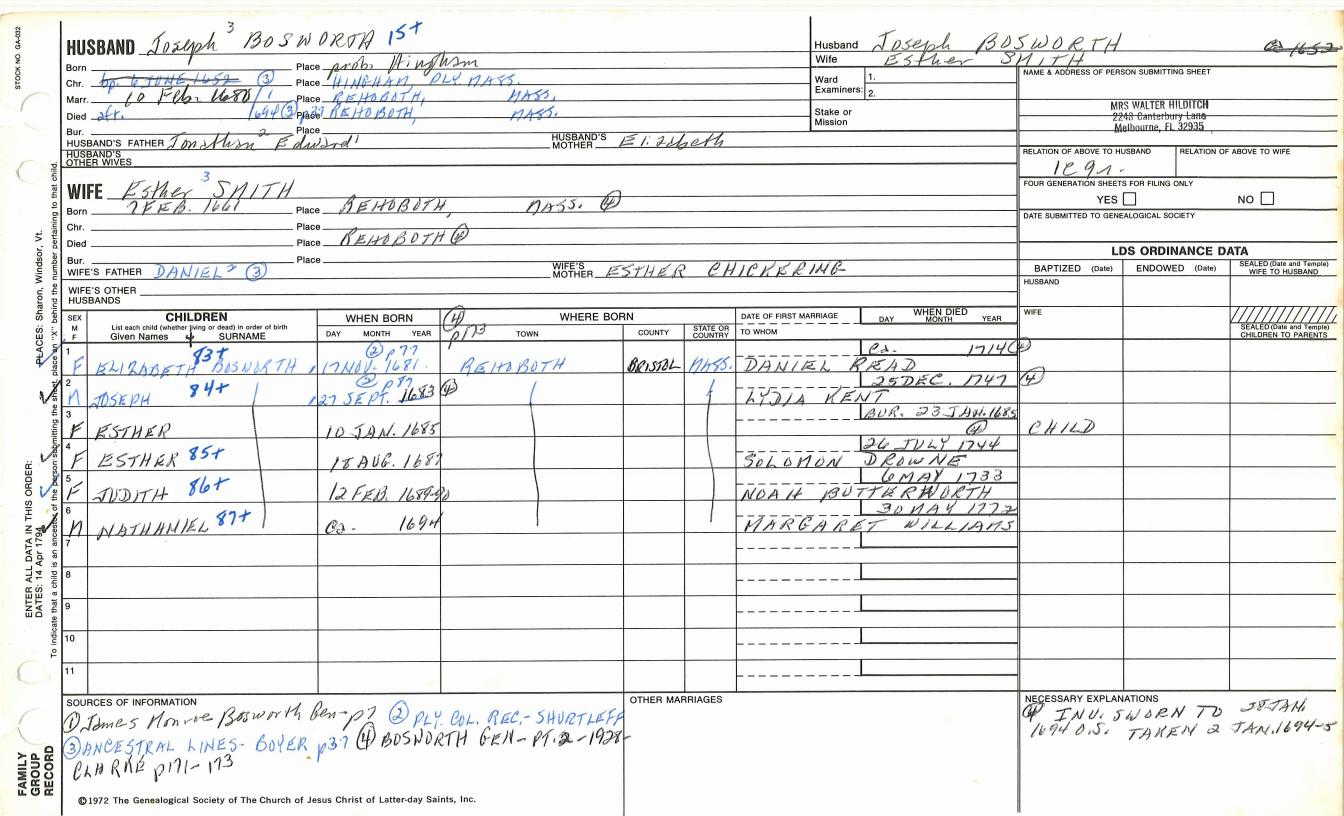 STOCK NO. GA-032
HUSBAND Joseph 3 BOSWORTH 15+
Born Place prob. Hingham
Chr. bp. 6 JUNE 1652 (3) Place HINGHAM, PLY MASS.
Marr. 10 Feb. 1680/1 Place REHOBOTH, MASS,
Died aft. 1694 (3) p37 Place REHOBOTH, MASS.
Bur. Place
HUSBAND'S FATHER Jonathan 2 Edward 1 HUSBAND'S MOTHER Elizabeth
HUSBAND'S OTHER WIVES
WIFE Esther 3 SMITH
Born 7 FEB. 1661 Place REHOBOTH, MASS. (4)
Chr. Place
Died Place REHOBOTH (4)
Bur. Place
WIFE'S FATHER DANIEL 2 (3) WIFE'S MOTHER ESTHER CHICKERING
WIFE'S OTHER HUSBANDS
Husband Joseph BOSWORTH
Wife Esther SMITH
Ward Examiners: 1.
2.
Stake or Mission
1652
NAME & ADDRESS OF PERSON SUBMITTING SHEET
MRS WALTER HILDITCH
2243 Canterbury Lane
Melbourne, FL 32935
RELATION OF ABOVE TO HUSBAND RELATION OF ABOVE TO WIFE
FOUR GENERATION SHEETS FOR FILING ONLY
YES NO
DATE SUBMITTED TO GENEALOGICAL SOCIETY
LDS ORDINANCE DATA
BAPTIZED (Date) ENDOWED (Date) SEALED (Date and Temple) WIFE TO HUSBAND
HUSBAND
WIFE
SEALED (Date and Temple) CHILDREN TO PARENTS
SEX M F CHILDREN WHEN BORN (4) p173 WHERE BORN DATE OF FIRST MARRIAGE WHEN DIED
List each child (whether living or dead) in order of birth
Given Names 4 SURNAME DAY MONTH YEAR TOWN COUNTY STATE OR COUNTRY TO WHOM DAY MONTH YEAR
1 F ELIZABETH 83+ BOSWORTH (2) p77 17 NOV. 1681. REHOBOTH BRISTOL MASS. DANIEL READ Ca. 1714 (4)
2 M JOSEPH 84+ (2) p87 27 SEPT. 1683 (4) LYDIA KENT 25 DEC. 1747 (4)
3 F ESTHER 10 JAN. 1685 BUR. 23 JAN. 1685 (4) CHILD
4 F ESTHER 85+ 18 AUG. 1687 SOLOMON DROWNE 26 JULY 1744
5 F JUDITH 86+ 12 FEB. 1689-90 NOAH BUTTERWORTH 6 MAY 1733
6 M NATHANIEL 87+ Ca. 1694 MARGARET WILLIAMS 30 MAY 1772
7
8
9
10
11
SOURCES OF INFORMATION
(1) James Monroe Bosworth Gen- p7 (2) PLY. COL. REC.- SHURTLEFF
(3) ANCESTRAL LINES- BOYER p37 (4) BOSWORTH GEN- PT. 2 - 1928-
CLARKE p171-173
OTHER MARRIAGES
NECESSARY EXPLANATIONS
(4) INV. SWORN TO JAN.
1694 O.S. TAKEN 2 JAN. 1694-5
©1972 The Genealogical Society of The Church of Jesus Christ of Latter-day Saints, Inc.
FAMILY GROUP RECORD
ENTER ALL DATA IN THIS ORDER:
DATES: 14 Apr 1794 PLACES: Sharon, Windsor, Vt.
To indicate that a child is an ancestor of the person submitting the sheet, place an "X" behind the number pertaining to that child.